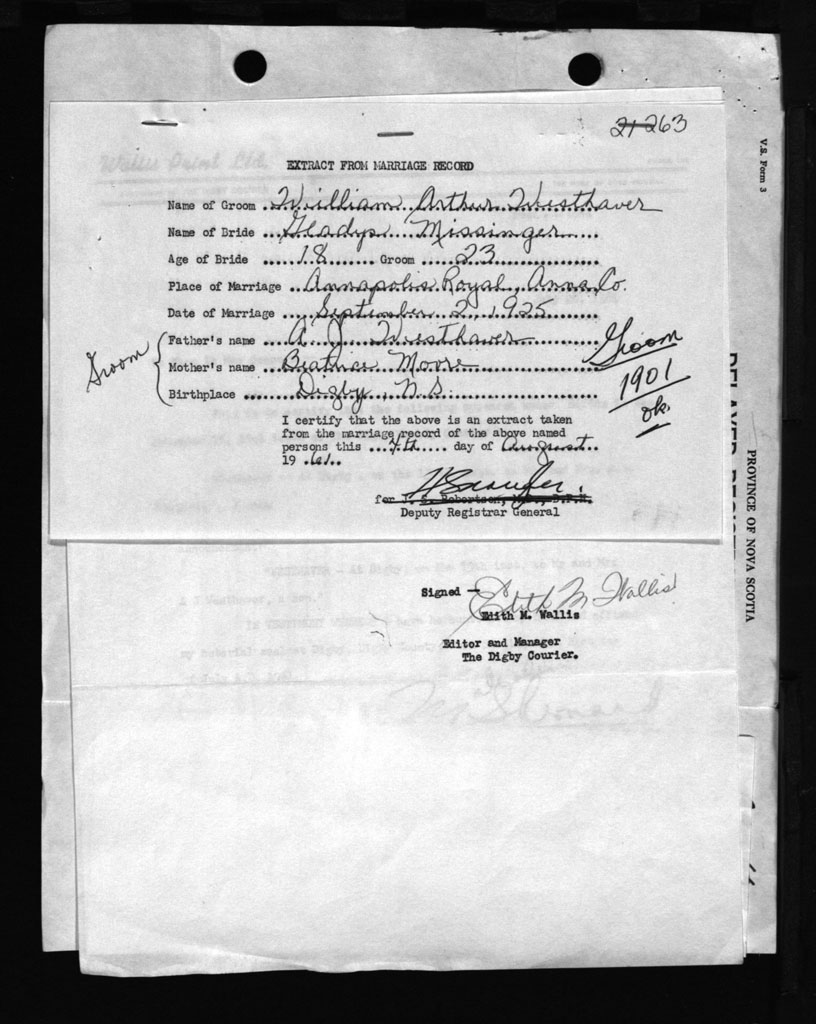 21 263
V.S. Form 3
EXTRACT FROM MARRIAGE RECORD
Name of Groom William Arthur Westhaver
Name of Bride Gladys Missinger
Age of Bride 18 Groom 23
Place of Marriage Annapolis Royal, Anna. Co.
Date of Marriage September 2, 1925
Groom
Father's name A J Westhaver
Mother's name Beatrice Moore
Birthplace Digby, N.S.
Groom
1901
ok.
I certify that the above is an extract taken
from the marriage record of the above named
persons this 4th day of August
19 61
for J. S. Robertson, M.D., D.P.H.
Deputy Registrar General
PROVINCE OF NOVA SCOTIA
Signed - Edith M Wallis
Edith M. Wallis
Editor and Manager
The Digby Courier.